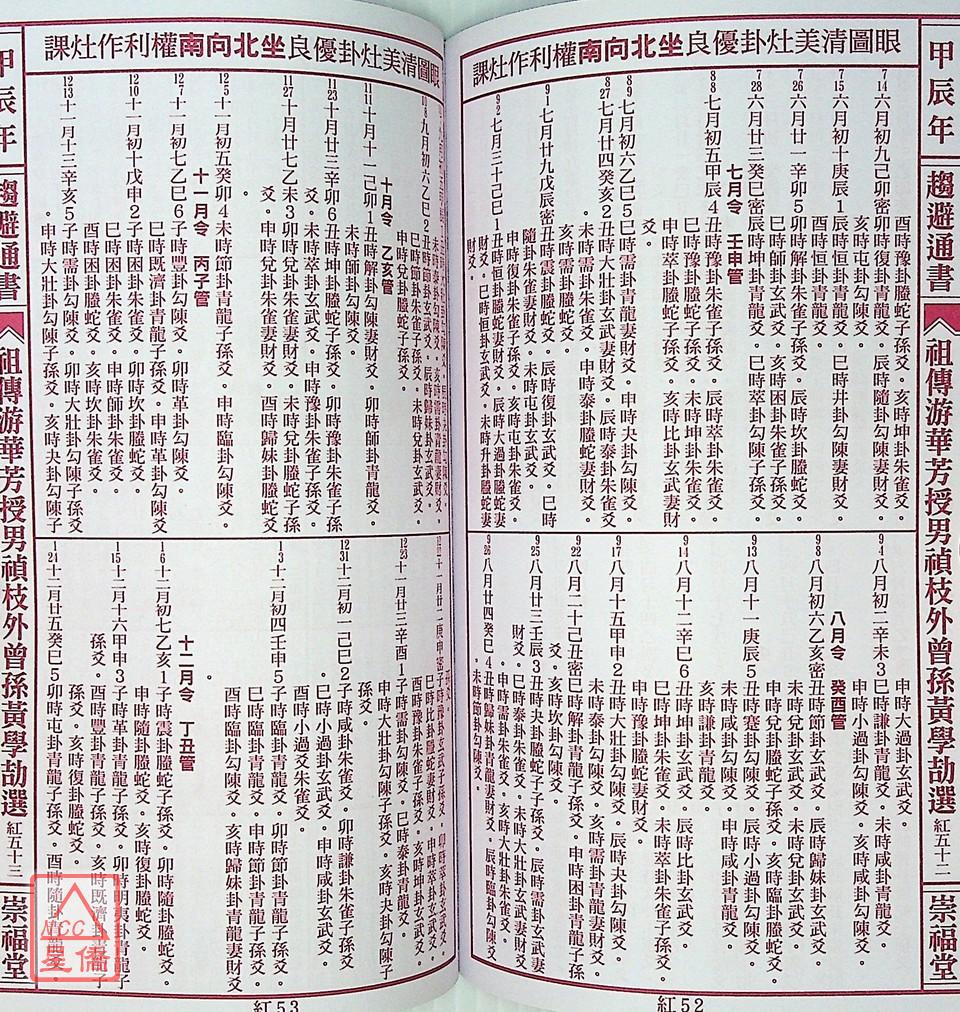 甲辰年
趨避通書
祖傳游華芳授男禎枝外曾孫黃學劼選
紅五十二
崇福堂
眼圖清美灶卦優良坐北向南權利作灶課
酉時豫卦螣蛇子孫爻。亥時坤卦朱雀爻。
7/14六月初九己卯密卯時豫卦青龍爻。辰時隨卦勾陳妻財爻。
亥時屯卦勾陳爻。
7/15六月初十庚辰1辰時恒卦青龍爻。巳時井卦勾陳妻財爻。
酉時恒卦青龍爻。
7/26六月廿一辛卯5卯時解卦朱雀子孫爻。辰時坎卦螣蛇爻。
巳時師卦玄武爻。亥時困卦朱雀子孫爻。
7/28六月廿三癸巳密辰時坤卦青龍爻。巳時萃卦勾陳子孫爻。
七月令 壬申管
8/8七月初五甲辰4丑時豫卦朱雀子孫爻。辰時萃卦朱雀爻。
巳時豫卦螣蛇子孫爻。未時坤卦螣蛇爻。
申時豫卦朱雀子孫爻。亥時比卦玄武妻財
爻。
8/9七月初六乙巳5巳時需卦青龍妻財爻。申時夬卦勾陳爻。
8/27七月廿四癸亥2丑時大壯卦玄武妻財爻。辰時泰卦朱雀爻。
未時需卦青龍妻財爻。申時泰卦螣蛇妻財爻。
亥時需卦玄武爻。
9/1七月廿九戊辰密丑時震卦螣蛇爻。辰時復卦玄武爻。巳時
隨卦朱雀妻財爻。未時屯卦玄武爻。
申時復卦勾陳爻。亥時屯卦朱雀爻。
9/2七月三十己巳1丑時恒卦螣蛇妻財爻。辰時大過卦螣蛇妻
財爻。巳時恒卦玄武爻。未時升卦螣蛇妻
財爻。
申時大過卦玄武爻。
9/4八月初二辛未3巳時謙卦青龍爻。未時咸卦青龍爻。
申時小過卦勾陳爻。
八月令 癸酉管
9/8八月初六乙亥密丑時節卦玄武爻。辰時歸妹卦玄武爻。
未時兌卦玄武爻。亥時節卦勾陳爻。
9/13八月十一庚辰5丑時蹇卦玄武爻。辰時小過卦勾陳爻。
未時咸卦勾陳爻。申時謙卦青龍爻。
亥時謙卦青龍爻。
9/14八月十二辛巳6丑時坤卦玄武爻。辰時比卦玄武爻。
巳時坤卦朱雀爻。未時萃卦勾陳爻。
申時豫卦螣蛇妻財爻。
9/17八月十五甲申2丑時大壯卦玄武爻。辰時夬卦勾陳爻。
未時泰卦勾陳爻。亥時需卦青龍妻財爻。
9/22八月二十己丑密巳時解卦青龍子孫爻。申時困卦青龍子孫
爻。
9/25八月廿三壬辰3丑時夬卦螣蛇子孫爻。辰時需卦玄武妻
財爻。巳時泰卦朱雀爻。未時大壯卦玄武妻財
爻。申時需卦玄武爻。亥時大壯卦朱雀爻。
9/26八月廿四癸巳4丑時歸妹卦青龍妻財爻。辰時臨卦勾陳爻
。未時節卦勾陳爻。
紅52
甲辰年
趨避通書
祖傳游華芳授男禎枝外曾孫黃學劼選
紅五十三
崇福堂
眼圖清美灶卦優良坐北向南權利作灶課
九月初六乙巳2丑時節卦玄武爻。辰時歸妹卦玄武爻。
巳時節卦朱雀爻。未時兌卦玄武爻。
申時兌卦螣蛇子孫爻。
十月令 乙亥管
11/11十月十一己卯1丑時解卦勾陳妻財爻。卯時師卦青龍爻。
未時師卦勾陳爻。
11/23十月廿三辛卯6丑時坤卦螣蛇爻。卯時豫卦朱雀子孫
爻。未時萃卦玄武爻。申時豫卦朱雀子孫爻。
11/27十月廿七乙未3卯時震卦朱雀妻財爻。未時兌卦螣蛇子孫
爻。申時兌卦朱雀妻財爻。酉時歸妹卦螣蛇
爻。
12/5十一月初五癸卯4未時節卦青龍子孫爻。申時臨卦勾陳爻。
十一月令 丙子管
12/7十一月初七乙巳6子時豐卦勾陳爻。卯時革卦勾陳爻。
巳時既濟卦青龍子孫爻。申時革卦勾陳爻。
12/10十一月初十戊申2子時師卦朱雀爻。卯時坎卦螣蛇爻。
巳時困卦朱雀爻。申時師卦勾陳爻。
酉時困卦螣蛇爻。亥時坎卦朱雀爻。
12/13十一月十三辛亥5子時需卦勾陳爻。卯時大壯卦勾陳子孫爻
。申時大壯卦勾陳子孫爻。亥時夬卦勾陳子
十一月廿二庚申密
巳時比卦螣蛇妻財爻。申時萃卦玄武爻。
酉時豫卦朱雀爻。亥時坤卦玄武爻。
12/23十一月廿三辛酉1子時需卦勾陳爻。巳時泰卦青龍爻。
申時大壯卦勾陳子孫爻。亥時夬卦勾陳子
孫爻。
12/31十二月初一己巳2子時咸卦玄武爻。卯時謙卦朱雀子孫爻。
巳時小過卦玄武爻。未時蹇卦玄武爻。
酉時小過卦朱雀爻。
1/3十二月初四壬申5子時臨卦青龍爻。卯時節卦青龍爻。
巳時臨卦勾陳爻。申時節卦青龍爻。
酉時臨卦勾陳爻。亥時歸妹卦青龍妻財爻
。
十二月令 丁丑管
1/6十二月初七乙亥1子時震卦螣蛇子孫爻。卯時隨卦螣蛇爻。
申時隨卦螣蛇爻。亥時復卦螣蛇爻。
1/15十二月十六甲申3子時革卦青龍子孫爻。卯時明夷卦青龍子
孫爻。酉時豐卦青龍子孫爻。亥時既濟卦青龍子
1/24十二月廿五癸巳5卯時屯卦青龍子孫爻。酉時隨卦青龍爻
。亥時復卦螣蛇爻。
NCC
星僑
紅53